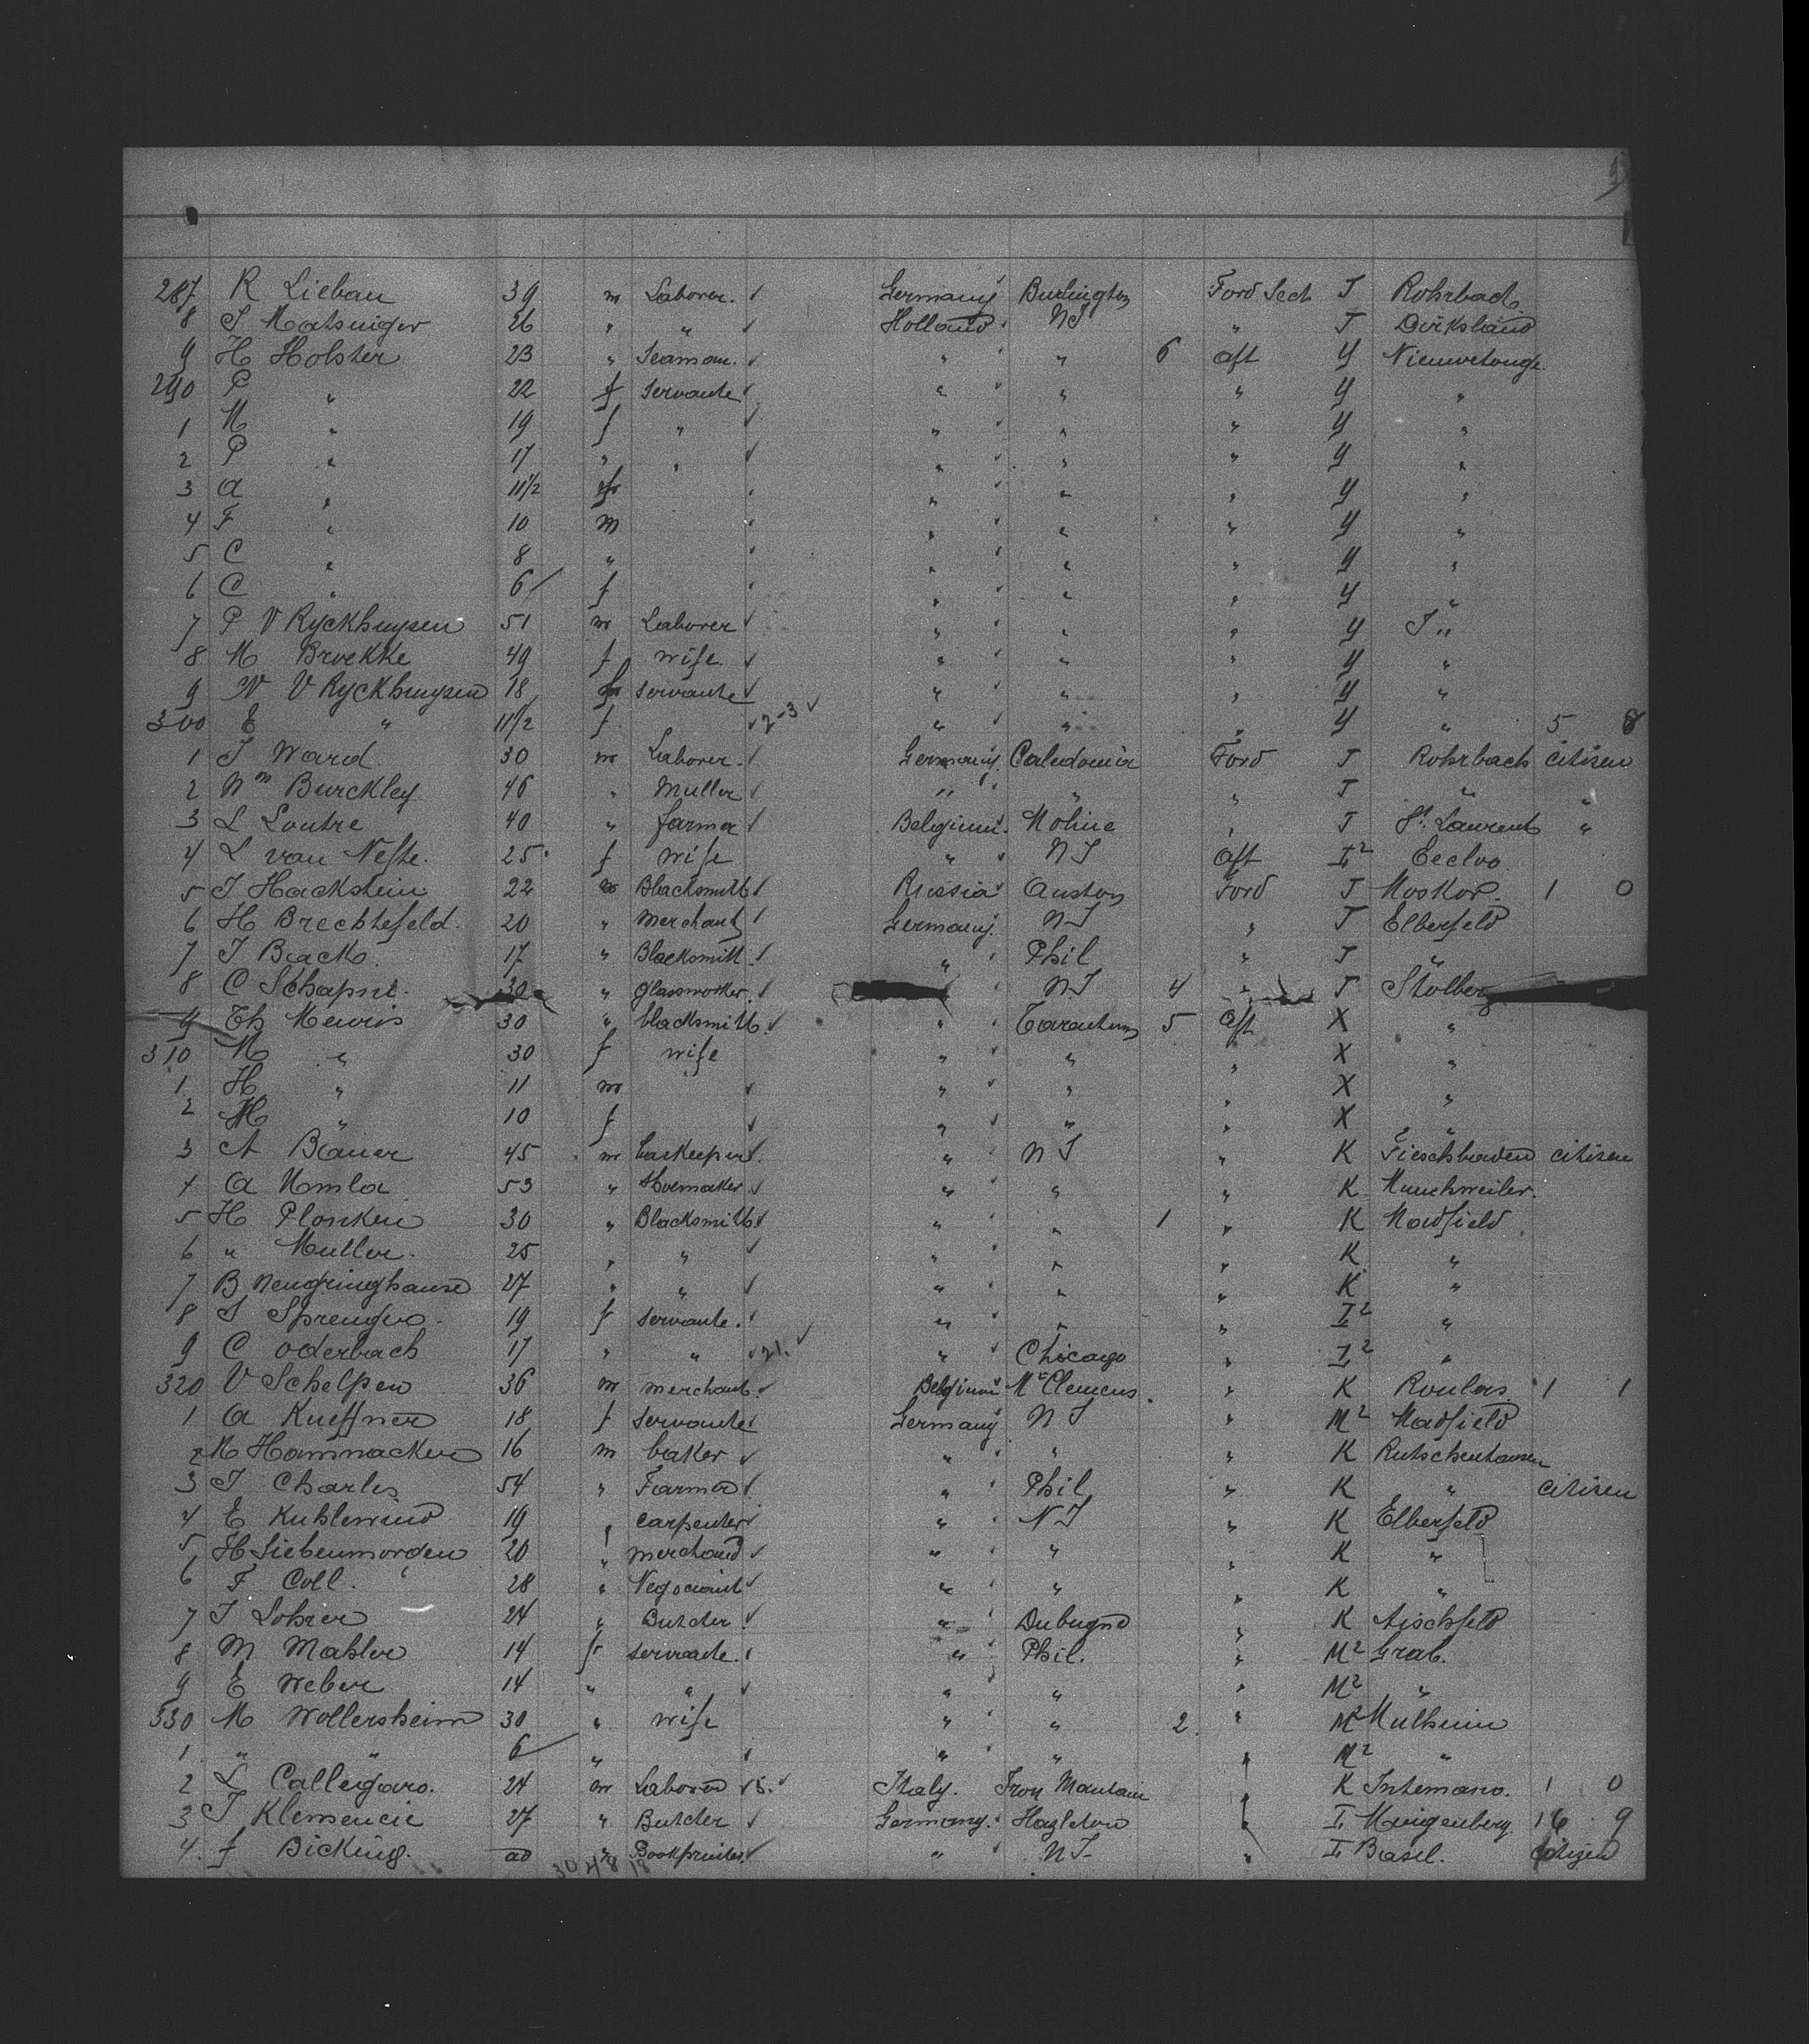 287 R Liebau 39 m Laborer. ✓ Germany Burlington Ford Sect J Rohrbach
8 J Matsuiger 26 " " ✓ Holland NJ " J Dirksland
9 H Holster 23 " Seaman. ✓ " " 6 aft Y Nieuwetonge
290 P " 22 f Servante ✓ " " " Y "
1 M " 19 f " ✓ " " " Y "
2 P " 17 " " ✓ " " " Y "
3 A " 11 1/2 " " " Y "
4 F " 10 m " " " Y "
5 C " 8 " " " " Y "
6 C " 6 f " " " Y "
7 P V Ryckhuysen 51 m Laborer ✓ " " " Y "
8 M Broekke 49 f wife ✓ " " " Y "
9 W V Ryckhuysen 18 servante ✓ " " " Y "
300 E " 11 1/2 f ✓ 2-3 ✓ " " " Y " 5 8
1 J Ward 30 m Laborer. ✓ Germany. Caledonia Ford J Rohrbach citizen
2 Wm Burckley 46 " Muller ✓ " " " J " "
3 L Loutre 40 " farmer ✓ Belgium. Moline " J St Laurent "
4 L van Neste. 25 f wife " NJ aft I2 Eecloo
5 J Hackstein 22 m Blacksmith ✓ Russia Auston Ford J Moskou. 1 0
6 H Brechtefeld. 20 " Merchant ✓ Germany. NJ " J Elberfeld
7 J Backs. 17 " Blacksmith. ✓ " Phil " J "
8 C Schapni. 30 " Glassworker. ✓ NJ 4 " J Stolberg
9 Th Mewis 30 " blacksmith. ✓ " Tarentum 5 aft X "
310 M " 30 f wife " " " X "
1 H " 11 m ✓ " " " X "
2 M " 10 f ✓ " " " X "
3 A Bauer 45 m ✓ " NJ " K citizen
4 A Umla 53 " Shoemaker ✓ " " " K Munchweiler.
5 H Planken 30 " Blacksmith ✓ " " 1 " K Madfield
6 " Muller. 25 " " ✓ " " " K "
7 B Neugringhause 27 " " ✓ " " " K "
8 J Sprenger 19 f servante. ✓ " " " I2 "
9 C Oderbach 17 " " ✓ 21. ✓ " Chicago " I2 "
320 V Schelpen 36 m merchant. ✓ Belgium Mt Clemens. " K Roulers. 1 1
1 A Kueffner 18 f servante ✓ Germany NJ " M2 Madfield
2 M Hammacken 16 m baker ✓ " " " K Rutschenhausen
3 J Charles 54 " Farmer ✓ " Phil " K " citizen
4 E Kuhlewind 19 " carpenter ✓ " NJ " K Elberfeld
5 H Siebenmorgen 20 " merchand ✓ " " " K "
6 F Coll. 28 " Negociant ✓ " " " K "
7 J Lohrer 24 " Butcher ✓ " Dubuque " K Aischfeld
8 M Mahler 14 f servante. " Phil. " M2 Grab.
9 E Weber 14 " " ✓ " " " M2 "
330 M Wollersheim 30 " wife " " 2. " M2 Mulheim
1 " " 6 " " " " M2 "
2 L Callegaro. 24 m Laborer ✓ 13. ✓ Italy. Iron Mountain " K Intemano. 1 0
3 J Klemencic 27 " Butcher ✓ Germany. Hazleton " I 16 9
4. f Bicking. ad " Bookprinter. ✓ " NJ " I Basel. Citizen